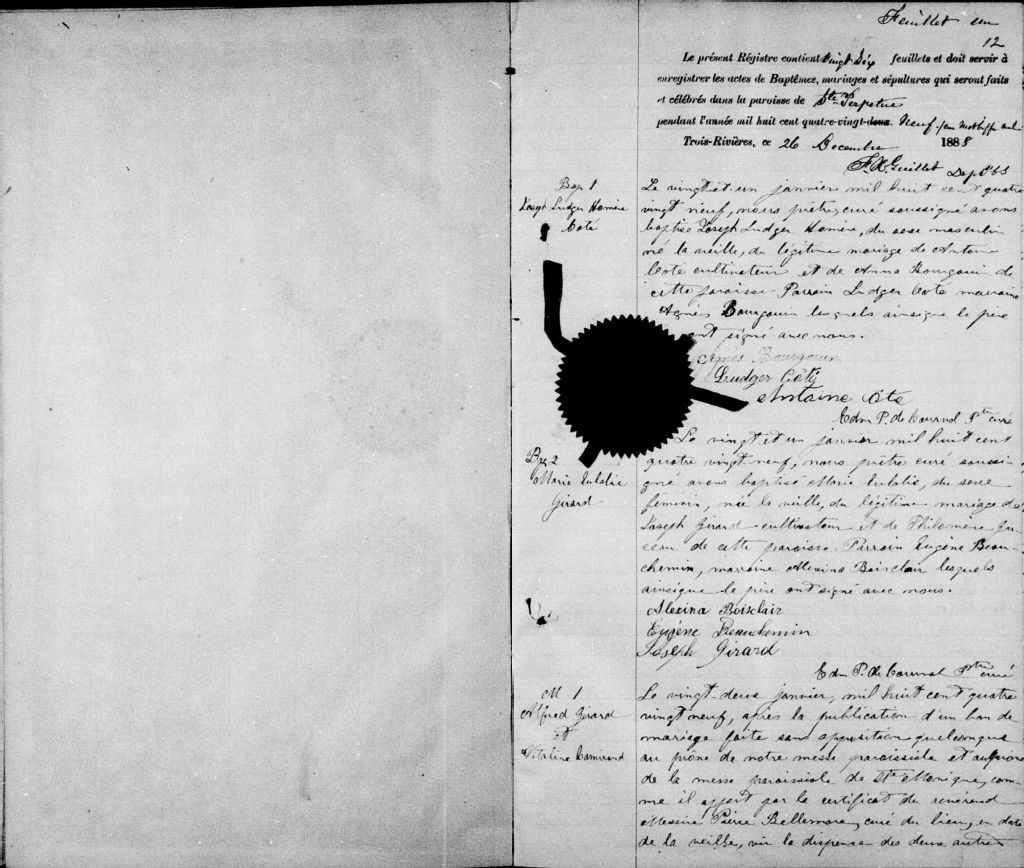 Feuillet un
12
Le présent Régistre contient vingt six feuillets et doit servir à
enregistrer les actes de Baptêmes, mariages et sépultures qui seront faits
et célébrés dans la paroisse de Ste Perpétue
pendant l'année mil huit cent quatre-vingt-deux. Neuf.
Trois-Rivières, ce 26 Decembre 1888
F. X. Guillet Dep
Bap 1
Joseph Ludger Homère
Coté
Le vingt et un janvier mil huit cent quatre
vingt neuf, nous prêtre, curé soussigné avons
baptisé Joseph Ludger Homère, du sexe masculin
né la veille, du légitime mariage de Antoine
Cote cultivateur et de Anna Bourgouin de
cette paroisse. Parrain Ludger Coté marraine
Agnès Bourgouin lesquels ainsique le père
ont signé avec nous.
Agnès Bourgouin
Ludger Côté
Antoine Côte
Edm P. de Courval Ptre curé
Bap 2
Marie Eulalie
Girard
Le vingt et un janvier mil huit cent
quatre vingt neuf, nous prêtre curé soussi-
gné avons baptisé Marie Eulalie, du sexe
féminin, née la veille, du légitime mariage de
Joseph Girard cultivateur et de Philomène
de cette paroisse. Parrain Eugène Beau-
chemin, marraine Alexina Boisclair lesquels
ainsique le père ont signé avec nous.
Alexina Boisclair
Eugène Beauchemin
Joseph Girard
Edm P. de Courval Ptre curé
M 1
Alfred Girard
et
Vitaline Camirand
Le vingt-deux janvier, mil huit cent quatre
vingt neuf, après la publication d'un ban de
mariage faite sans opposition quelconque
au prône de notre messe paroissiale et au prône
de la messe paroissiale de Ste Monique, com-
me il appert par le certificat du révérend
Messire Pierre Bellemare, curé du lieu, en date
de la veille, vu la dispense des deux autres